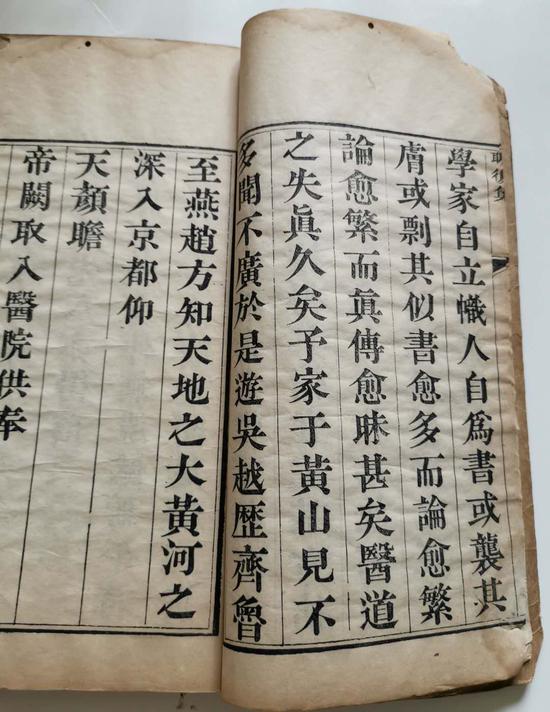 學家自立幟人自爲書或襲其
膚或剽其似書愈多而論愈繁
論愈繁而眞傳愈昧甚矣醫道
之失眞久矣予家于黃山見不
多聞不廣於是遊吳越歴齊魯
至燕趙方知天地之大黃河之
深入京都仰
天顏瞻
帝闕取入醫院供奉